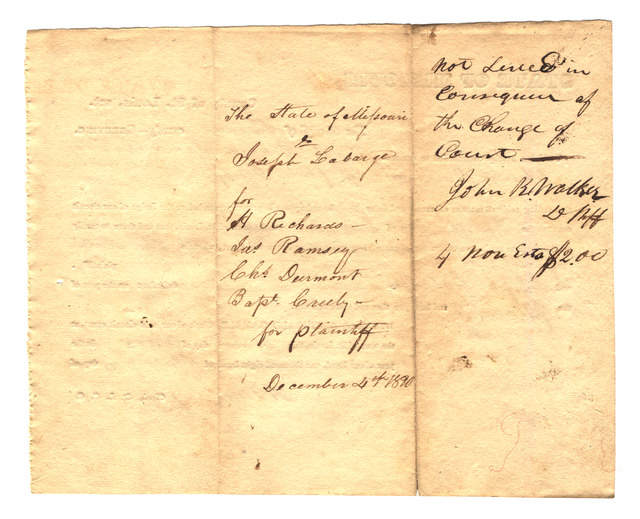 The State of Missouri
&
Joseph Labarge
for
H Richards –
Jas Ramsey
Chs Durmont
Bapt. Creely –
for plaintiff
December 4th 1820
not served in
Consequence of
the Change of
Court —
John K. Walker
D Shff
4 Non Ests $2.00